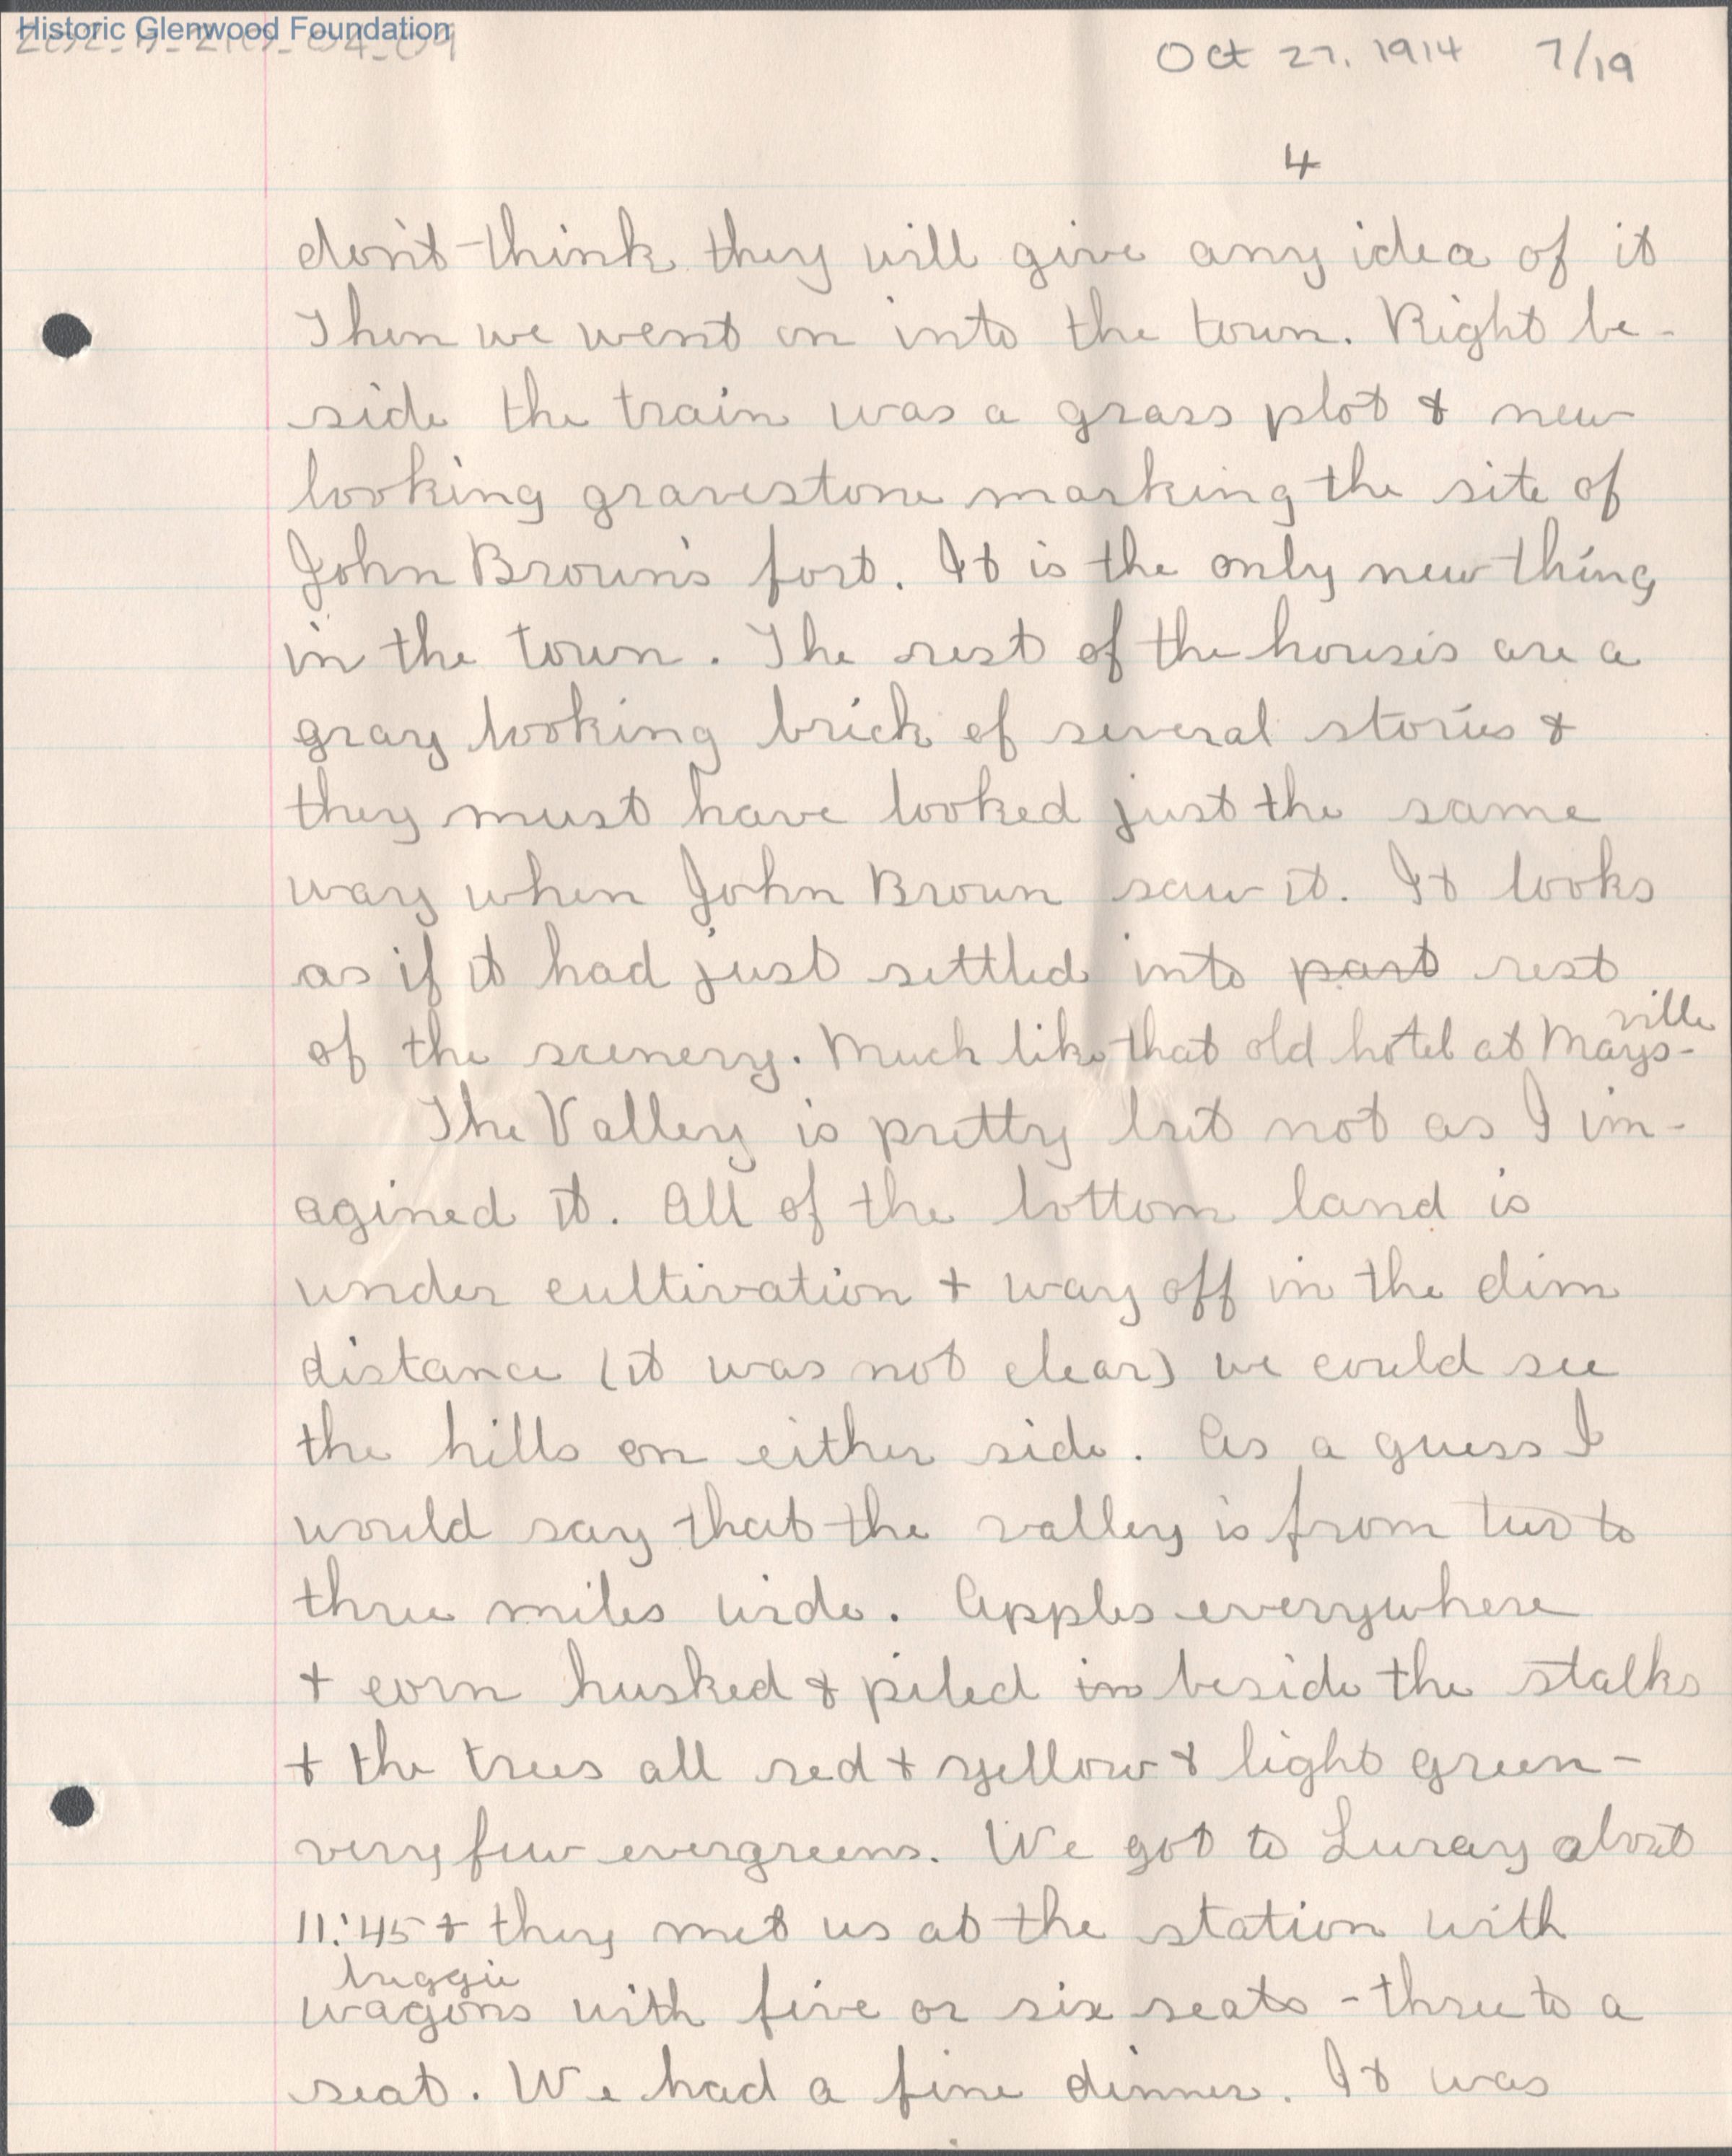 Historic Glenwood Foundation
Oct 27. 1914 7/19
4
don't think they will give any idea of it
Then we went on into the town. Right be-
side the train was a grass plot & new
looking gravestone marking the site of
John Brown's fort. It is the only new thing
in the town. The rest of the houses are a
gray looking brick of several stories &
they must have looked just the same
way when John Brown saw it. It looks
as if it had just settled into part rest
of the scenery. Much like that old hotel at Mays-
ville
The Valley is pretty but not as I im-
agined it. All of the bottom land is
under cultivation + way off in the dim
distance (it was not clear) we could see
the hills on either side. As a guess I
would say that the valley is from two to
three miles wide. Apples everywhere
+ corn husked & piled in beside the stalks
+ the trees all red + yellow & light green-
very few evergreens. We got to Luray about
11:45 + they met us at the station with
buggie
wagons with five or six seats - three to a
seat. We had a fine dinner. It was